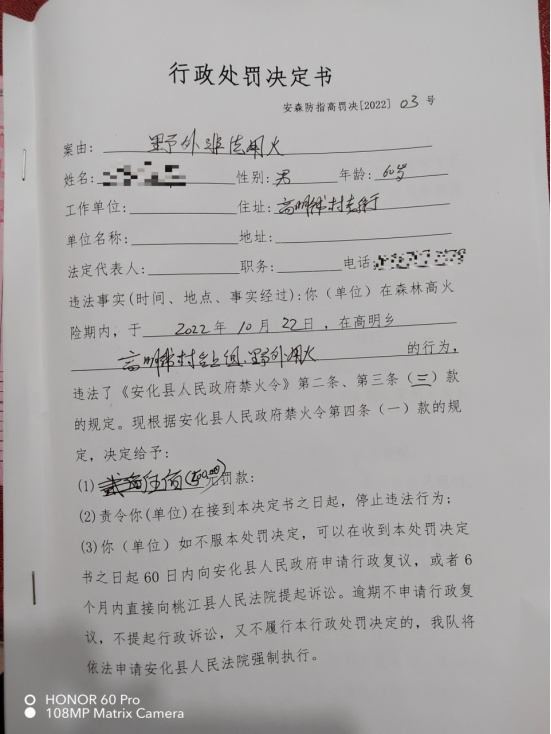 行政处罚决定书
安森防指高罚决[2022] 03 号
案由: 野外非法用火
姓名: 性别: 男 年龄: 60岁
工作单位: 住址: 高明铺村
单位名称: 地址:
法定代表人: 职务: 电话
违法事实(时间、地点、事实经过):你(单位)在森林高火
险期内，于 2022年10月22日，在高明乡
高明铺村 组 野外用火 的行为，
违法了《安化县人民政府禁火令》第二条、第三条(三)款
的规定。现根据安化县人民政府禁火令第四条(一)款的规
定，决定给予:
(1) 伍佰(500.00)元罚款:
(2)责令你(单位)在接到本决定书之日起，停止违法行为;
(3)你(单位)如不服本处罚决定，可以在收到本处罚决定
书之日起60日内向安化县人民政府申请行政复议，或者6
个月内直接向桃江县人民法院提起诉讼。逾期不申请行政复
议，不提起行政诉讼，又不履行本行政处罚决定的，我队将
依法申请安化县人民法院强制执行。
HONOR 60 Pro
108MP Matrix Camera